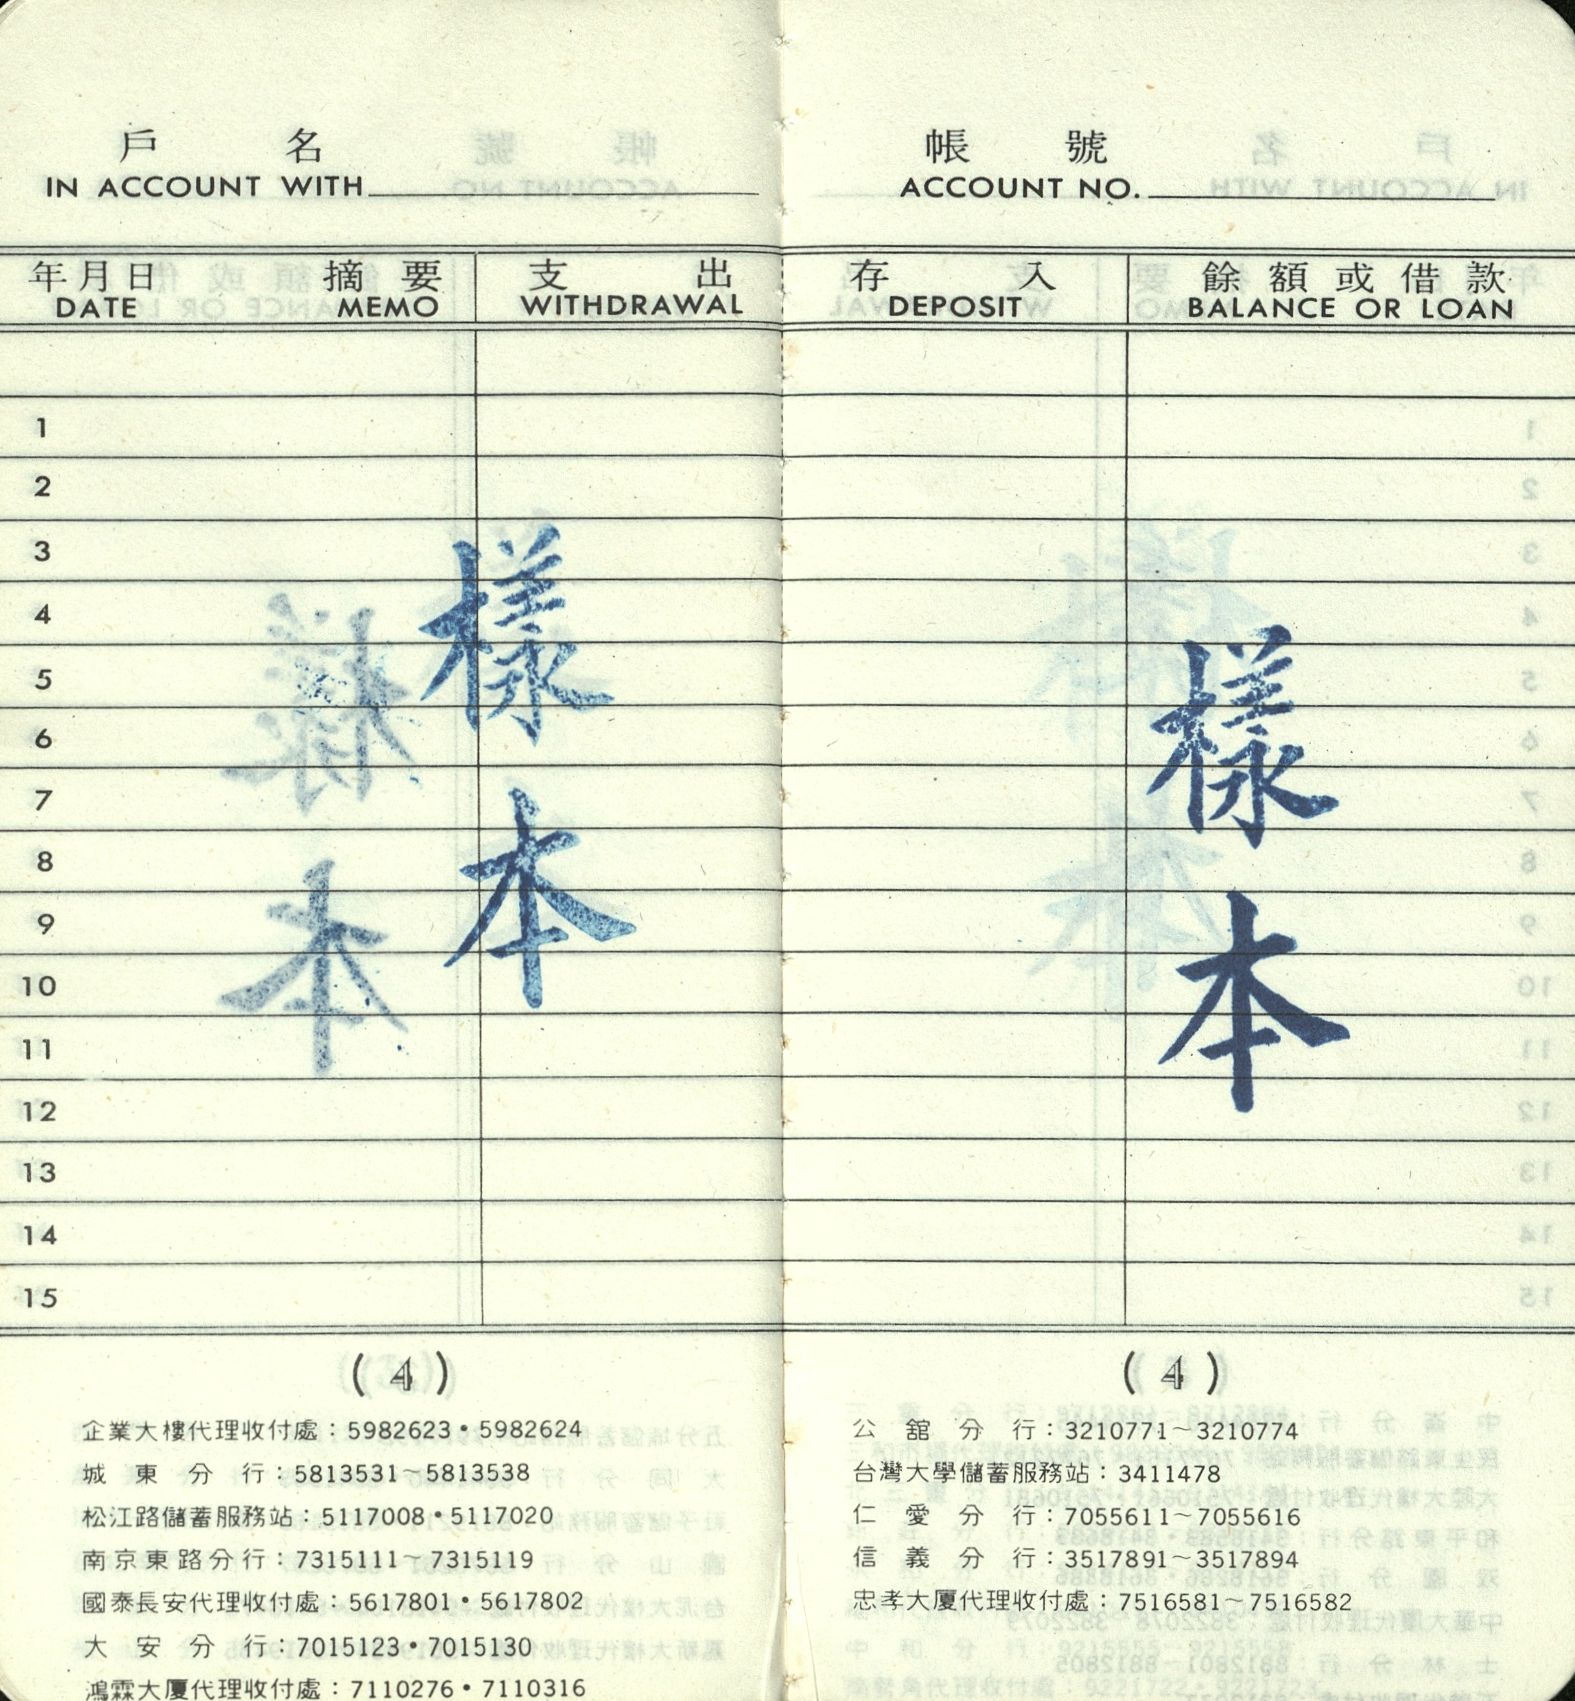 戶 名
IN ACCOUNT WITH
帳 號
ACCOUNT NO.
年月日 摘要 支出 存入 餘額或借款
DATE MEMO WITHDRAWAL DEPOSIT BALANCE OR LOAN
1
2
3
4
5
6
7
8
9
10
11
12
13
14
15
樣本
樣本
(4)
企業大樓代理收付處：5982623•5982624
城東分行：5813531~5813538
松江路儲蓄服務站：5117008•5117020
南京東路分行：7315111~7315119
國泰長安代理收付處：5617801•5617802
大安分行：7015123•7015130
鴻霖大廈代理收付處：7110276•7110316
(4)
公館分行：3210771~3210774
台灣大學儲蓄服務站：3411478
仁愛分行：7055611~7055616
信義分行：3517891~3517894
忠孝大廈代理收付處：7516581~7516582